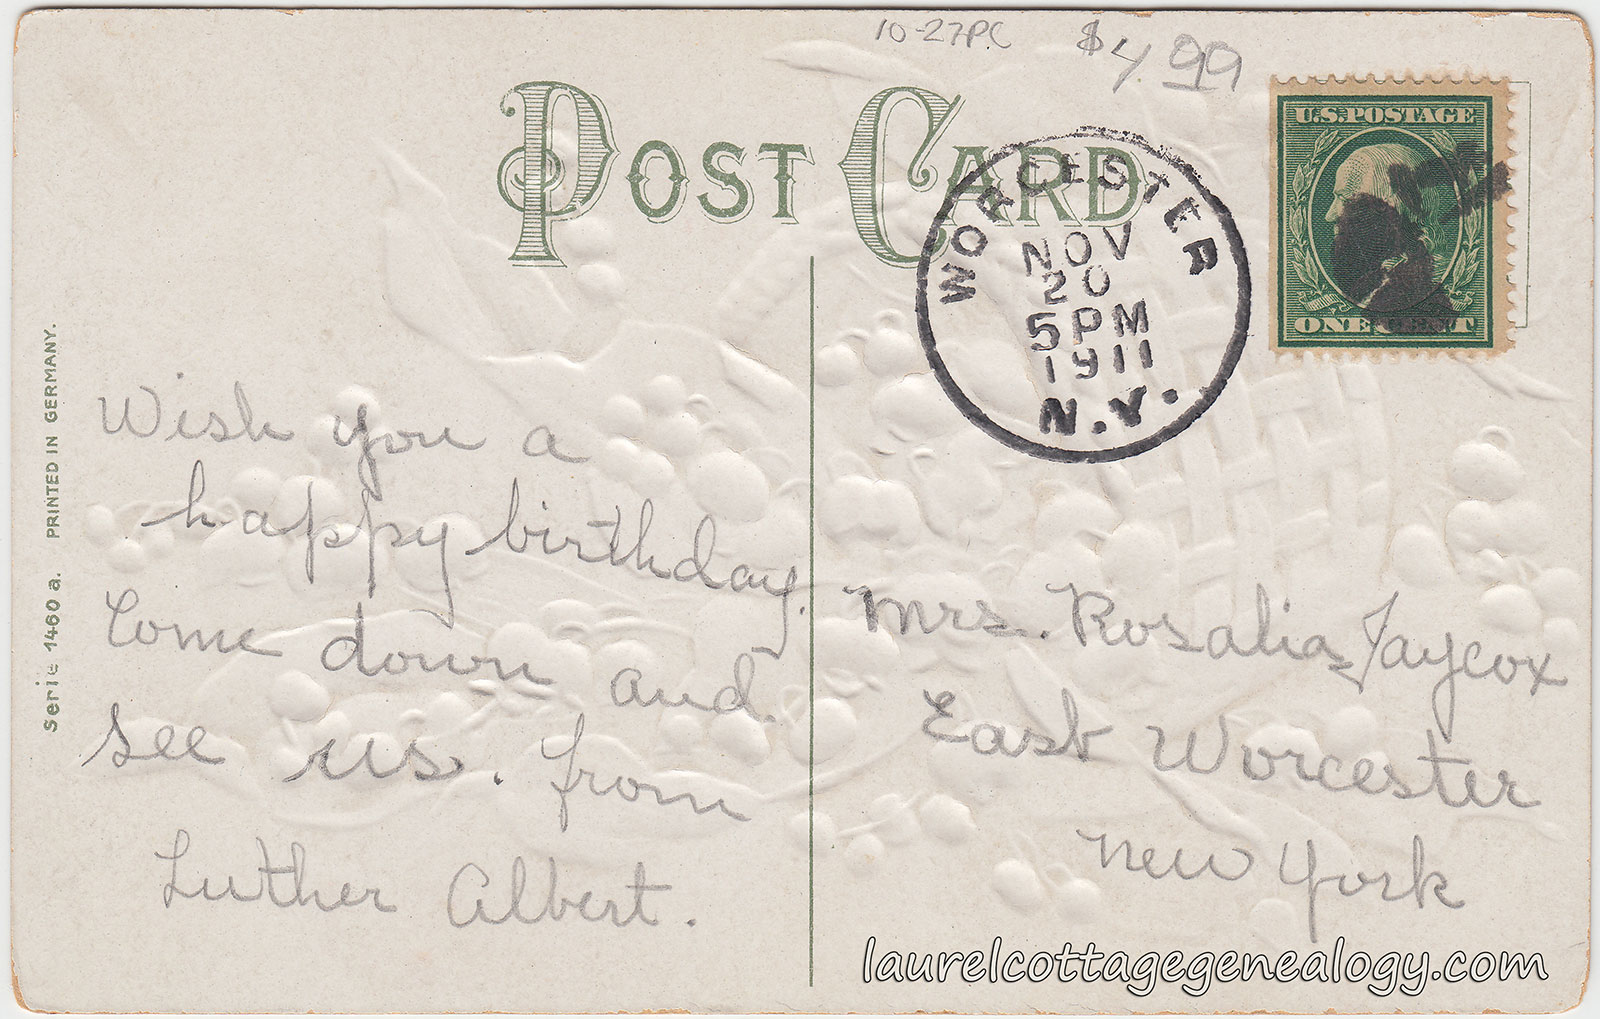 10-27PC $4.99
POST CARD
U.S. POSTAGE
ONE CENT
WORCESTER
NOV
20
5 PM
1911
N.Y.
Serie 1460 a. PRINTED IN GERMANY.
Wish you a
happy birthday.
Come down and
see us. from
Luther Albert.
Mrs. Rosalia Jaycox
East Worcester
New York
laurelcottagegenealogy.com